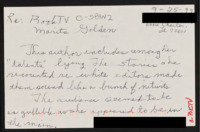 9-25-99
Re: BookTV C-SPAN2
Marita Golden
This author includes among her
"talents" lying. The stories she
recounted re white editors made
them sound like a bunch of
The audience seemed to be
as gullible as she appeared to be in
the main.